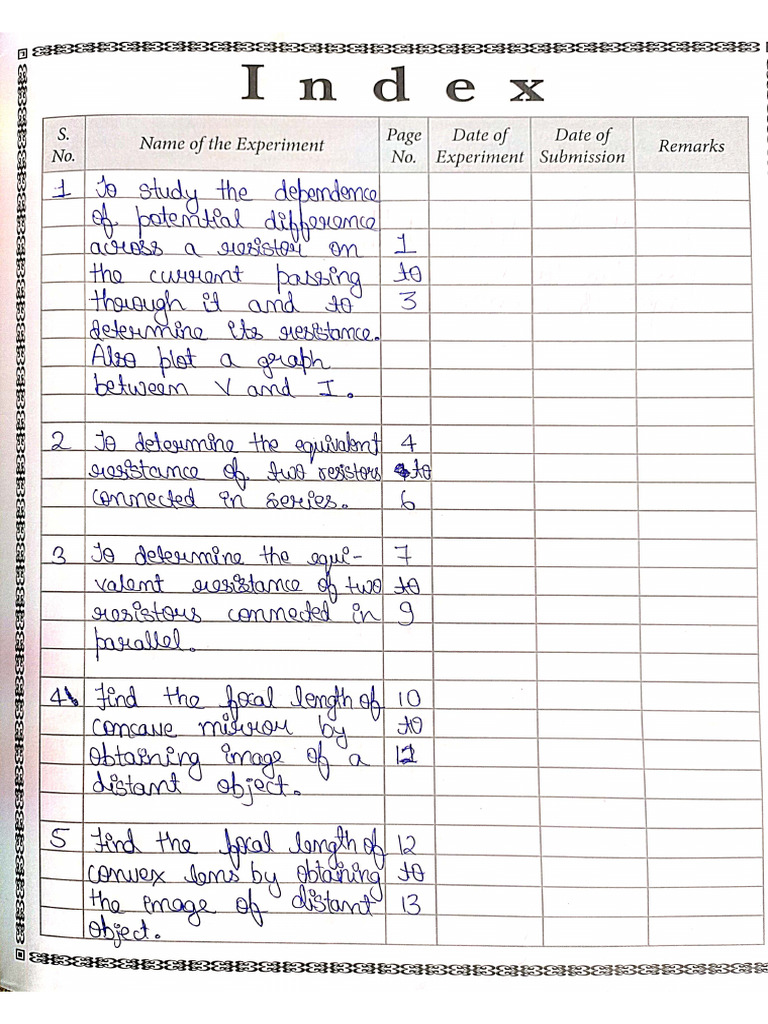 Index
S. No. Name of the Experiment Page No. Date of Experiment Date of Submission Remarks
1 To study the dependence
of potential difference
across a resistor on 1
the current passing to
through it and to 3
determine its resistance.
Also plot a graph
between V and I.
2 To determine the equivalent 4
resistance of two resistors to
connected in series. 6
3 To determine the equi- 7
valent resistance of two to
resistors connected in 9
parallel.
4 Find the focal length of 10
concave mirror by to
obtaining image of a 12
distant object.
5 Find the focal length of 12
convex lens by obtaining to
the image of distant 13
object.